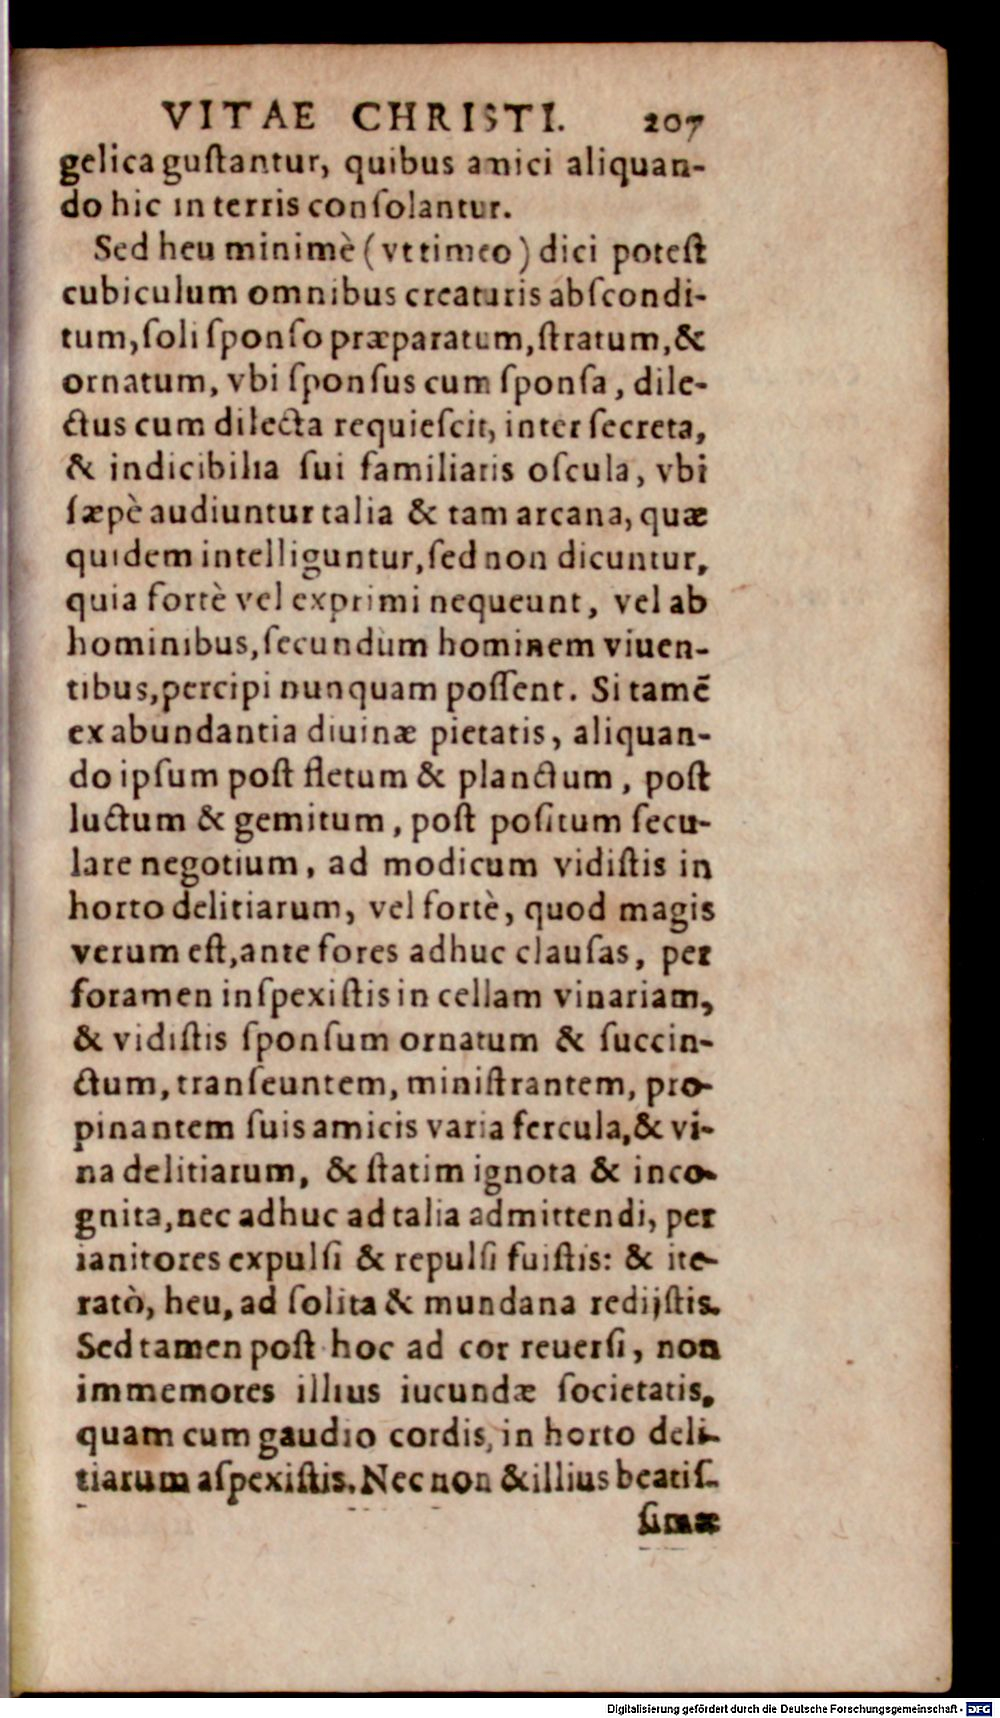 VITAE CHRISTI. 207
gelica guſtantur, quibus amici aliquan-
do hic in terris conſolantur.
Sed heu minimè (vt timeo) dici poteſt
cubiculum omnibus creaturis abſcondi-
tum, ſoli ſponſo præparatum, ſtratum, &
ornatum, vbi ſponſus cum ſponſa, dile-
ctus cum dilecta requieſcit, inter ſecreta,
& indicibilia ſui familiaris oſcula, vbi
ſæpè audiuntur talia & tam arcana, quæ
quidem intelliguntur, ſed non dicuntur,
quia fortè vel exprimi nequeunt, vel ab
hominibus, ſecundùm hominem viuen-
tibus, percipi nunquam poſſent. Si tamẽ
ex abundantia diuinæ pietatis, aliquan-
do ipſum poſt fletum & planctum, poſt
luctum & gemitum, poſt poſitum ſecu-
lare negotium, ad modicum vidiſtis in
horto delitiarum, vel fortè, quod magis
verum eſt, ante fores adhuc clauſas, per
foramen inſpexiſtis in cellam vinariam,
& vidiſtis ſponſum ornatum & ſuccin-
ctum, tranſeuntem, miniſtrantem, pro-
pinantem ſuis amicis varia fercula, & vi-
na delitiarum, & ſtatim ignota & inco-
gnita, nec adhuc ad talia admittendi, per
ianitores expulſi & repulſi fuiſtis: & ite-
ratò, heu, ad ſolita & mundana redijſtis.
Sed tamen poſt hoc ad cor reuerſi, non
immemores illius iucundæ ſocietatis,
quam cum gaudio cordis, in horto deli-
tiarum aſpexiſtis. Nec non & illius beatiſ-
ſimæ
Digitalisierung gefördert durch die Deutsche Forschungsgemeinschaft - DFG